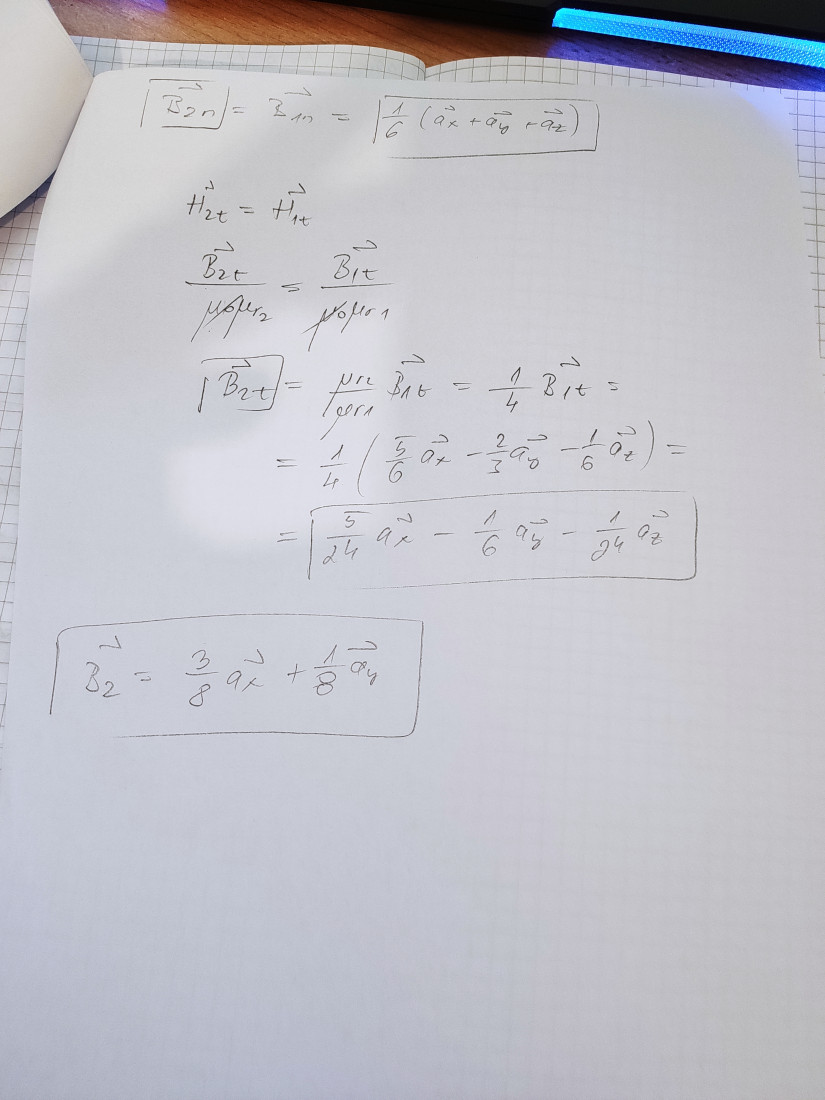 B⃗2n = B⃗1n = 1/6 (a⃗x + a⃗y + a⃗z)
H⃗2t = H⃗1t
B⃗2t/μ0μr2 = B⃗1t/μ0μr1
B⃗2t = μr2/μr1 B⃗1t = 1/4 B⃗1t =
= 1/4 (5/6 a⃗x - 2/3 a⃗y - 1/6 a⃗z) =
= 5/24 a⃗x - 1/6 a⃗y - 1/24 a⃗z
B⃗2 = 3/8 a⃗x + 1/8 a⃗y